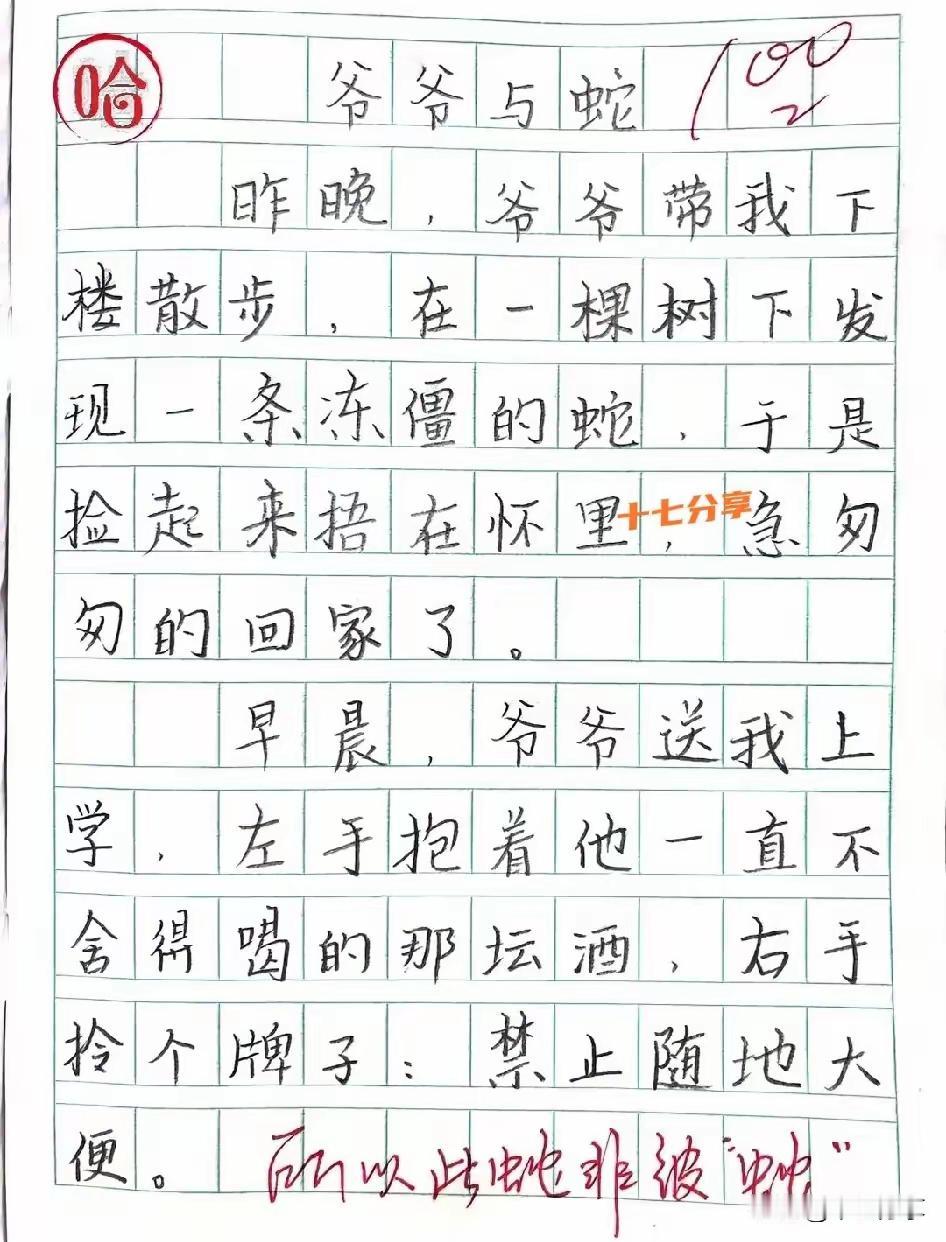 哈
爷爷与蛇
100
昨晚，爷爷带我下
楼散步，在一棵树下发
现一条冻僵的蛇，于是
捡起来捂在怀里，急匆
十七分享
匆的回家了。
早晨，爷爷送我上
学，左手抱着他一直不
舍得喝的那坛酒，右手
拎个牌子：禁止随地大
便。
所以此蛇非彼“蛇”